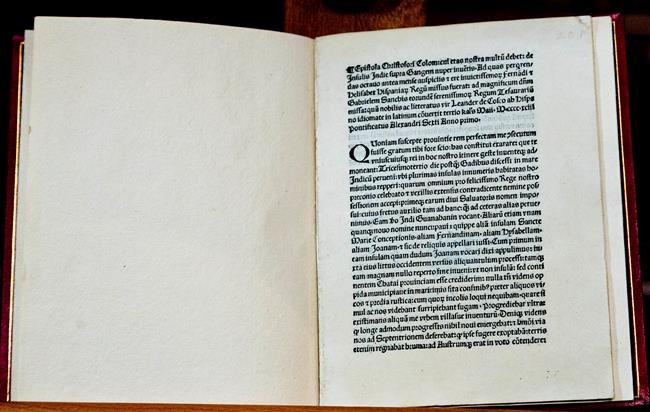 ¶ Epistola Christofori Colom: cui etas nostra multũ debet: de
Insulis Indie supra Gangem nuper inuẽtis. Ad quas perqren-
das octauo antea mense auspiciis τ ere inuictissimoꝝ Fernãdi τ
Helisabet Hispaniaꝝ Regũ missus fuerat: ad magnificum dñm
Gabrielem Sanchis eorundẽ serenissimoꝝ Regum Tesaurariũ
missa: quã nobilis ac litteratus vir Leander de Cosco ab Hispa
no idiomate in latinum cõuertit tertio kalẽs Maii · M·cccc·xciii
Pontificatus Alexandri Sexti Anno primo·
Quoniam suscepte prouintie rem perfectam me ꝯsecutum
fuisse gratum tibi fore scio: has constitui exarare: que te
vniuscuiusqꝫ rei in hoc nostro itinere geste inuenteqꝫ ad-
moneant: Tricesimotertio die postqꝫ Gadibus discessi in mare
Indicũ perueni: vbi plurimas insulas innumeris habitatas ho-
minibus repperi: quarum omnium pro felicissimo Rege nostro
preconio celebrato τ vexillis extensis contradicente nemine pos-
sessionem accepi: primeqꝫ earum diui Saluatoris nomen impo-
sui: cuius fretus auxilio tam ad hanc: qꝫ ad ceteras alias perue-
nimus· Eam ho Indi Guanahanin vocant· Aliarũ etiam vnam
quanqꝫ nouo nomine nuncupaui: quippe aliã insulam Sancte
Marie Conceptionis· aliam Fernandinam· aliam Hysabellam·
aliam Joanam· τ sic de reliquis appellari iussi· Cum primum in
eam insulam quam dudum Joanam vocari dixi appulimus: iu-
xta eius littus occidentem versus aliquantulum processi: tamqꝫ
eam magnam nullo reperto fine inueni: vt non insulã: sed conti
nentem Chatai prouinciam esse crediderim: nulla tñ videns op
pida municipiaue in maritimis sita confinibꝰ preter aliquos vi-
cos τ predia rustica: cum quoꝝ incolis loqui nequibam· quare si
mul ac nos videbant surripiebant fugam· Progrediebar vltra:
existimans aliquã me vrbem villasue inuenturũ· Deniqꝫ videns
qꝫ longe admodum progressis nihil noui emergebat: τ hmõi via
nos ad Septentrionem deferebat: qꝫ ipse fugere exoptabã: terris
etenim regnabat bruma: ad Austrumqꝫ erat in voto cõtendere: